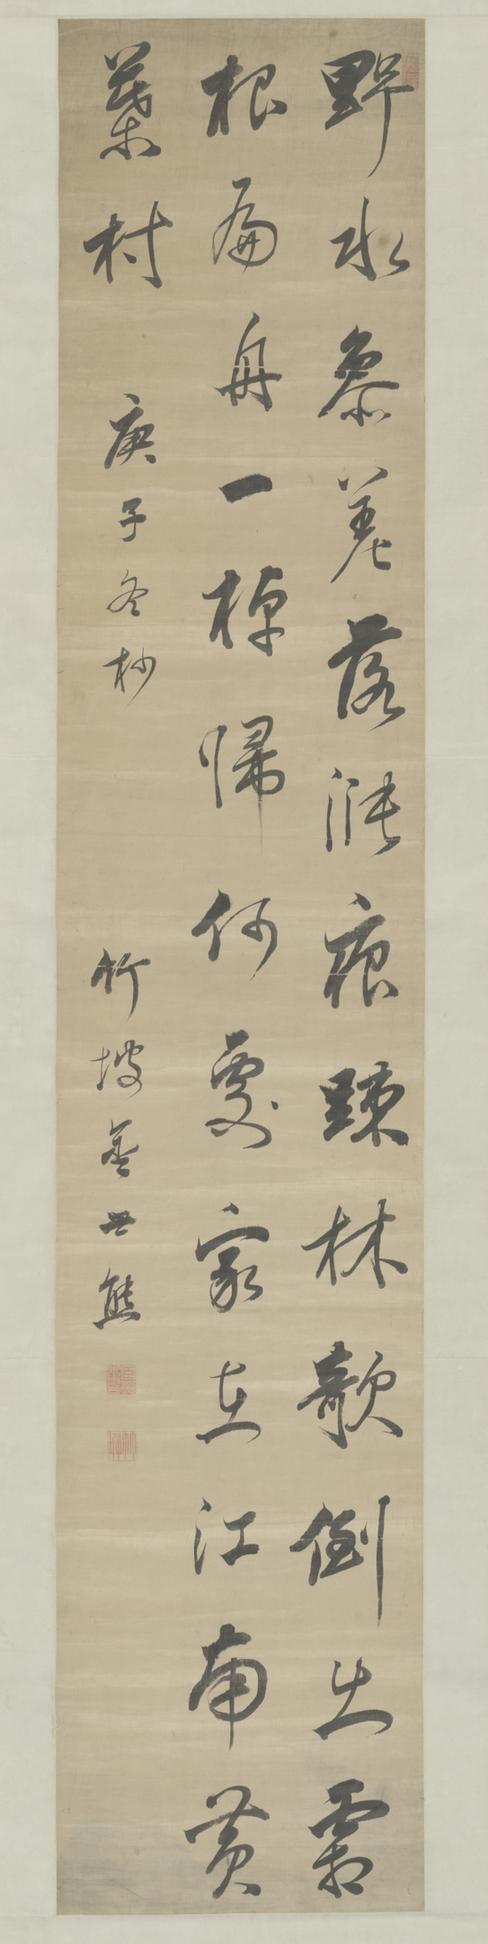 野水參差落漲痕踈林欹倒出霜
根扁舟一棹歸何處家在江南黄
葉村
庚子冬杪
竹坡
世熊